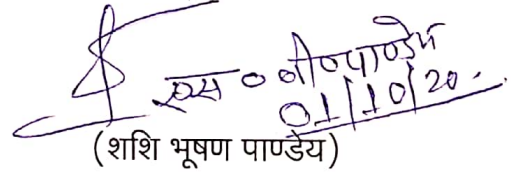 एस० बी० पाण्डेय
01/10/20.
(शशि भूषण पाण्डेय)